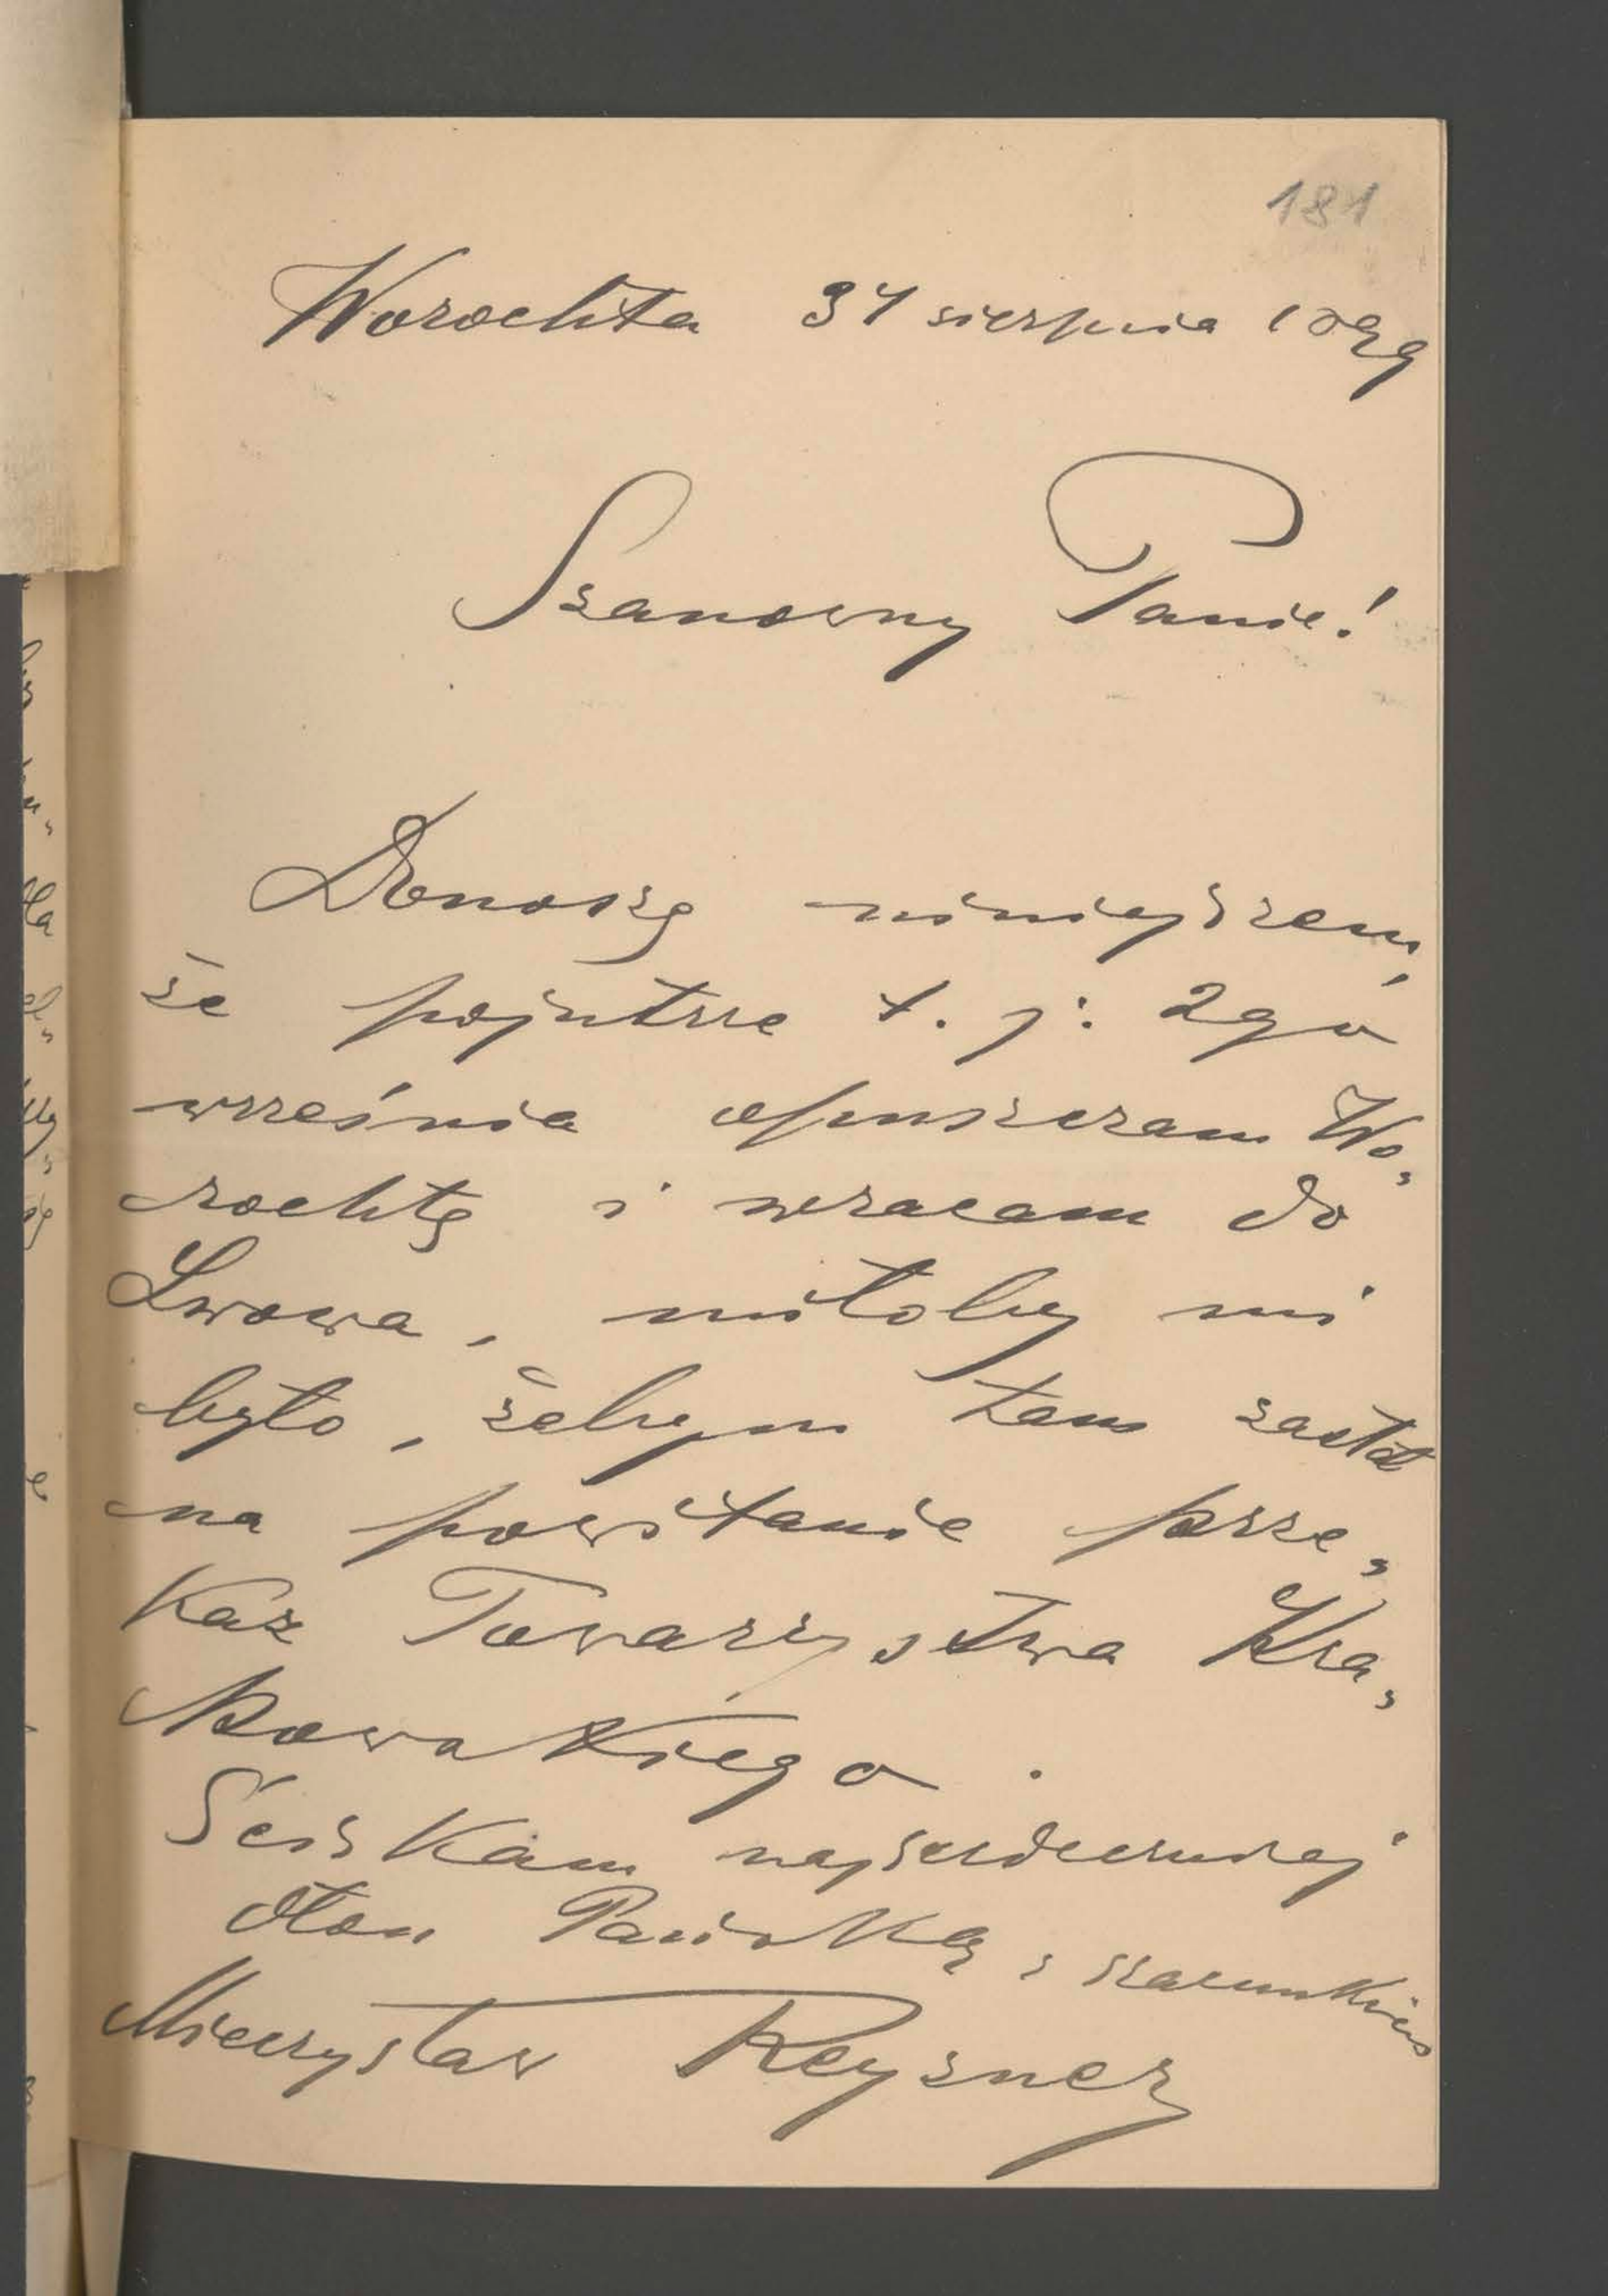 181
Worochta 31 sierpnia 1899
Szanowny Panie!
Donoszę niniejszem,
że pojutrze t. j. 2go
września opuszczam Wo„
rochtę i wracam do
Lwowa, miłoby mi
było, żebym tam zastał
na powitanie prze„
kaz Towarzystwa Kra„
kowskiego.
Ściskam najserdeczniej
dłoń Pańską, z szacunkiem
Mieczysław Reyzner